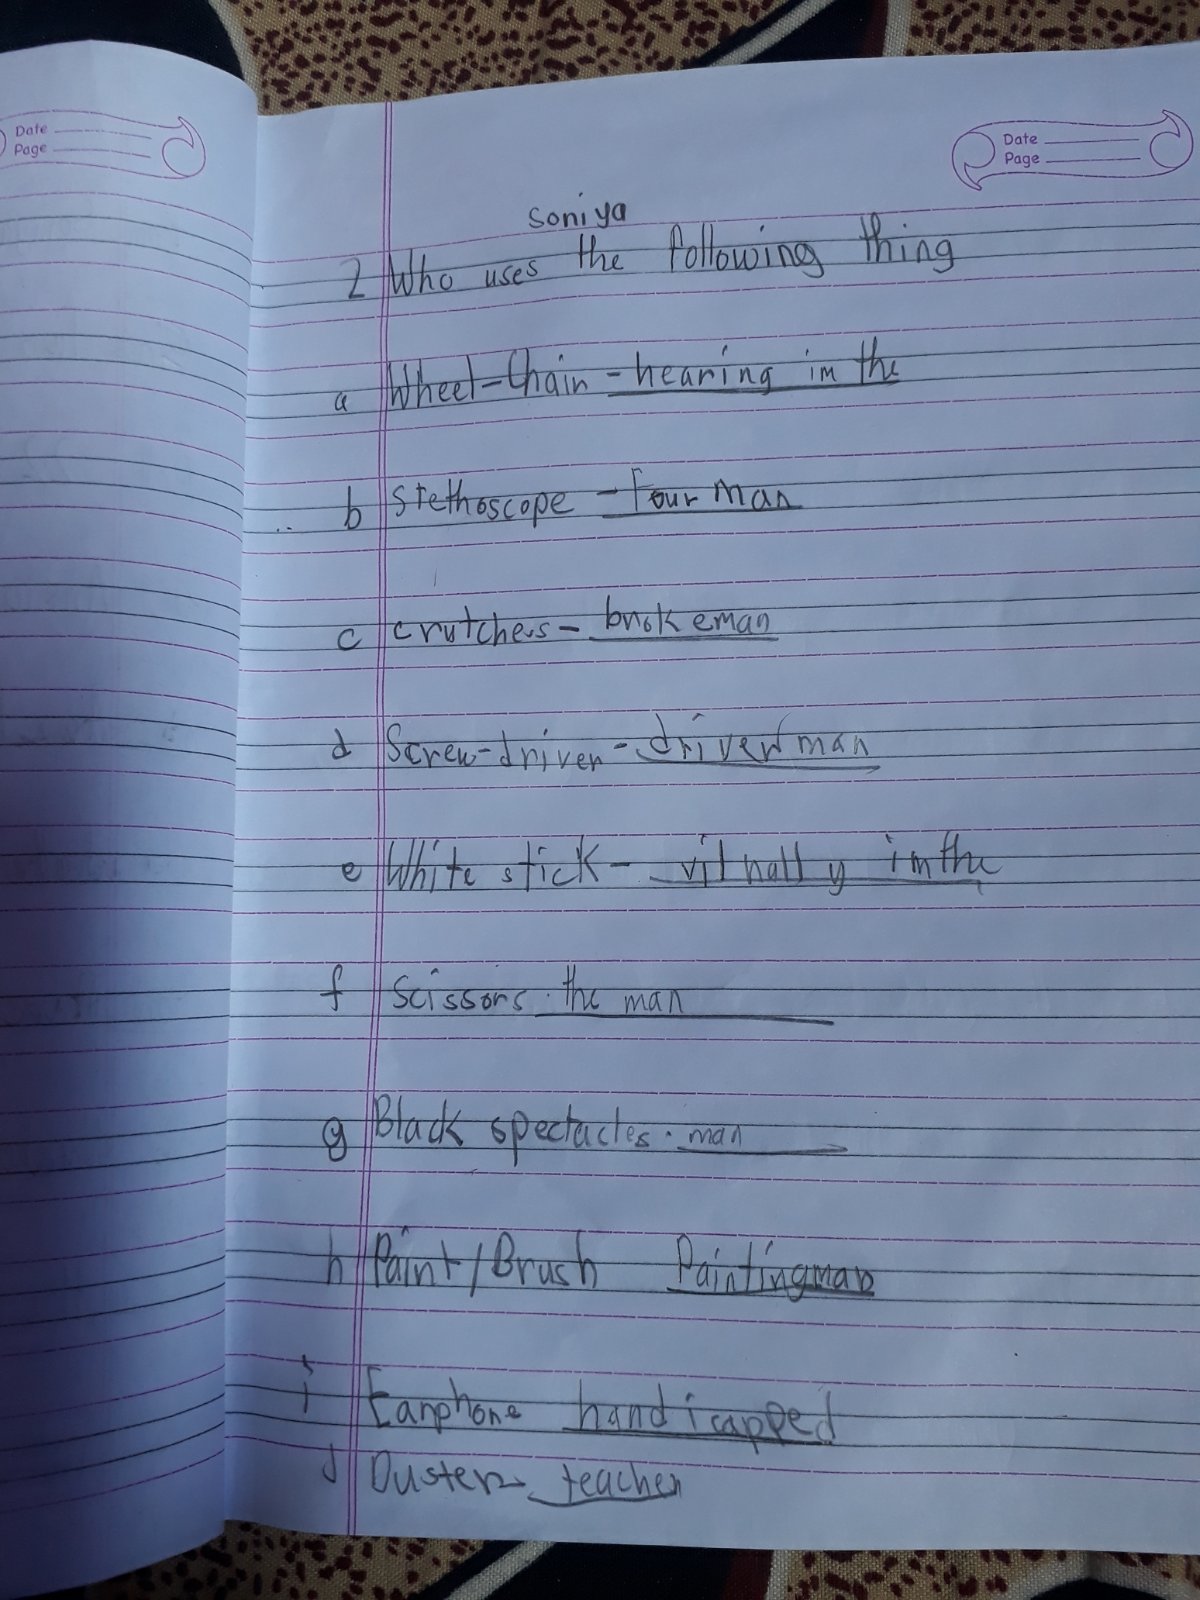 Date
Page
Date
Page
Soniya
2 Who uses the following thing
a Wheel-Chain - hearing im the
b Stethoscope - Four Man
c crutches - brokeman
d Screw-driver - driver man
e White stick - vitnally im the
f Scissors. the man
g Black spectacles. man
h Paint/Brush Paintingman
i Earphone handicapped
J Duster teacher